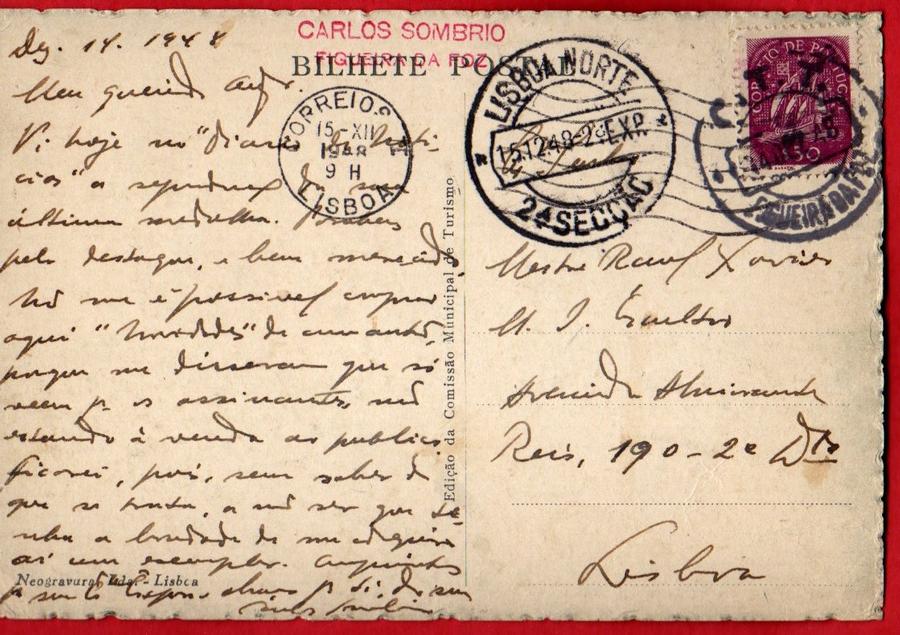 CARLOS SOMBRIO
FIGUEIRA DA FOZ
BILHETE POSTAL
Dez. 14. 1948
Meu querido
Vi hoje no "Diario de Noti-
cias" a reprodução da sua
última medalha. Parabens
pelo destaque, e bem merecido.
Não me é possivel comprar
aqui "Novidades" de
porque me disseram que só
veem p. os assinantes, não
estando à venda ao publico.
Ficarei, pois, sem saber de
que se trata, a não ser que te-
nha a bondade de me
aí um exemplar.
CORREIOS
15-XII
1948
9 H
LISBOA
LISBOA NORTE
15.12.48-2ª EXP.
2ª SECÇÃO
CORREIO DE PORTUGAL
50
C. T. T.
FIGUEIRA DA FOZ
Mestre Raul Xavier
M. I. Escultor
Avenida Almirante
Reis, 190-2º Dto
Lisboa
Edição da Comissão Municipal de Turismo
Neogravura, Lda. - Lisboa